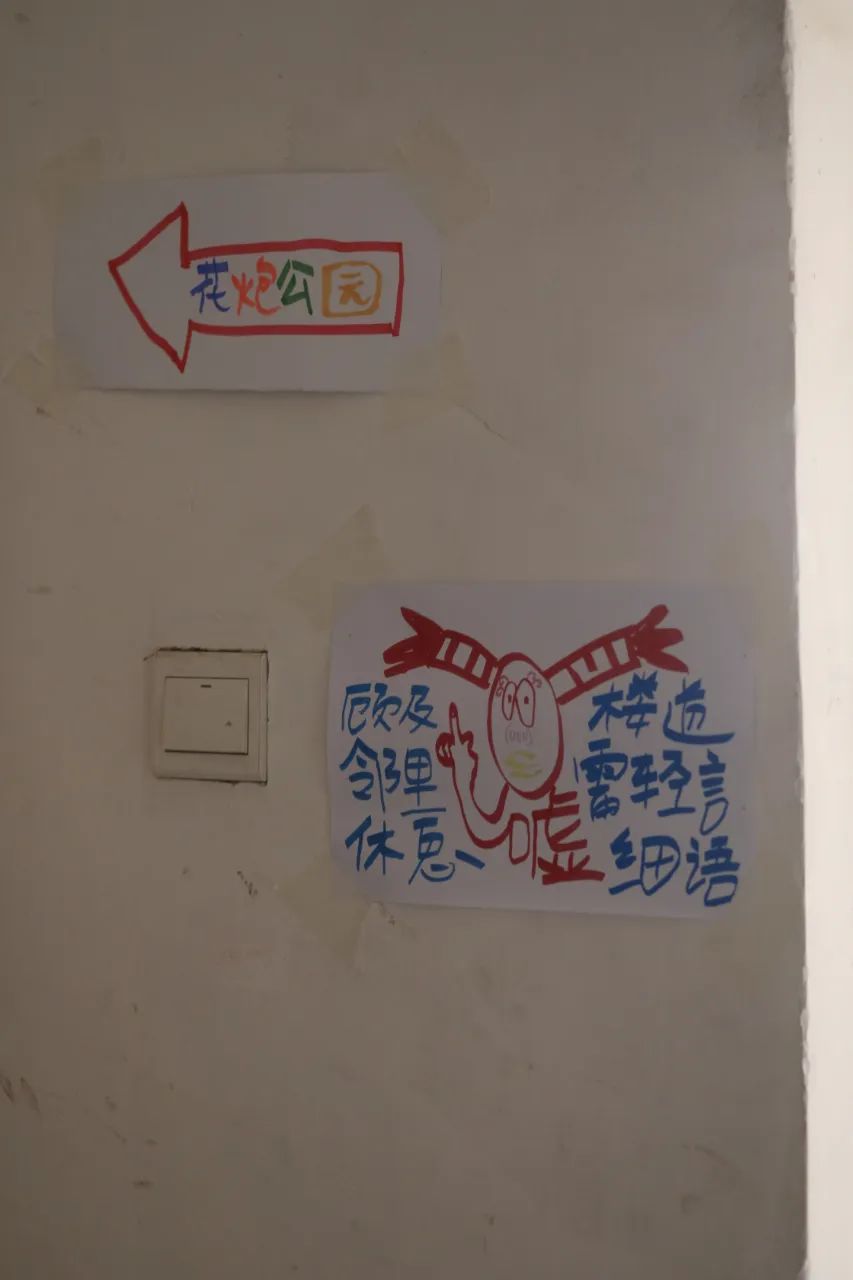 花炮公园
顾及
邻里
休息
嘘
楼道
需轻言
细语